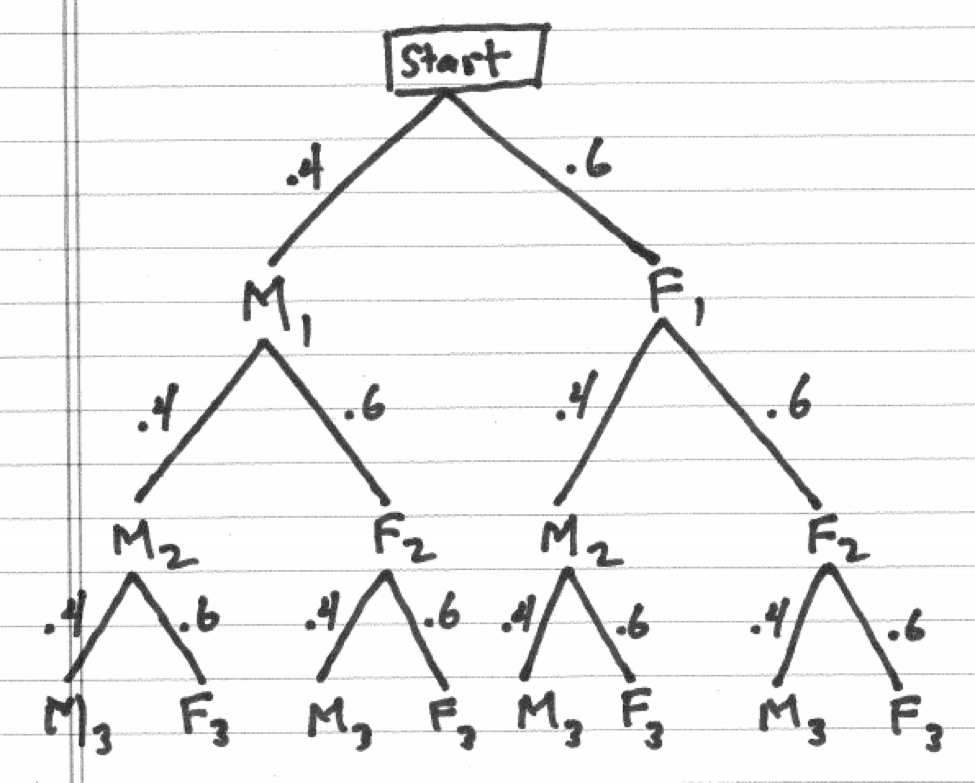 Start
.4 .6
M1 F1
.4 .6 .4 .6
M2 F2 M2 F2
.4 .6 .4 .6 .4 .6 .4 .6
M3 F3 M3 F3 M3 F3 M3 F3